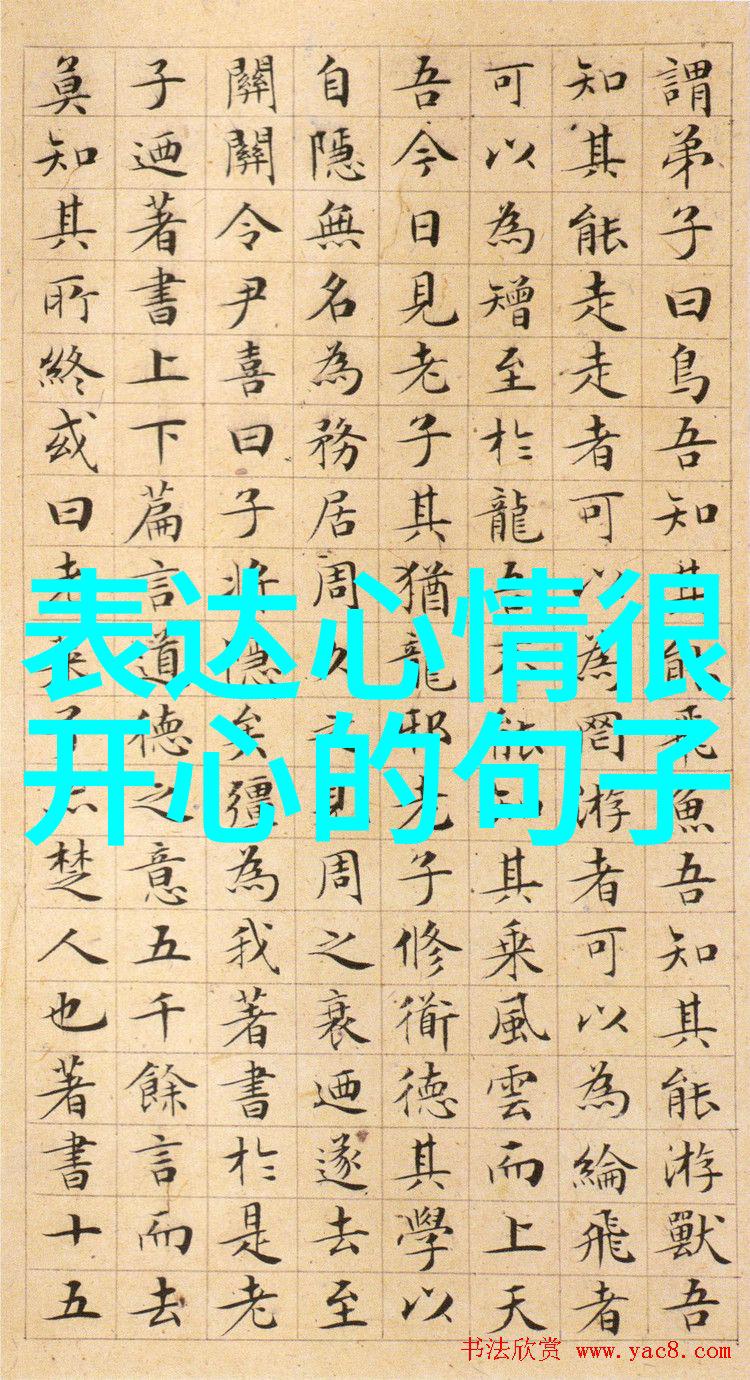 謂弟子曰鳥吾知其能飛魚吾知其能游獸吾
知其能走走者可以為罔游者可以為綸飛者
可以為矰至於龍吾不能知其乘風雲而上天
吾今日見老子其猶龍邪老子修衜德其學以
自隱無名為務居周久之見周之衰迺遂去至
關關令尹喜曰子將隱矣彊為我著書於是老
子迺著書上下篇言道德之意五千餘言而去
莫知其所終或曰老萊子亦楚人也著書十五
表达心情很
开心的句子
书法欣赏 www.yac8.com